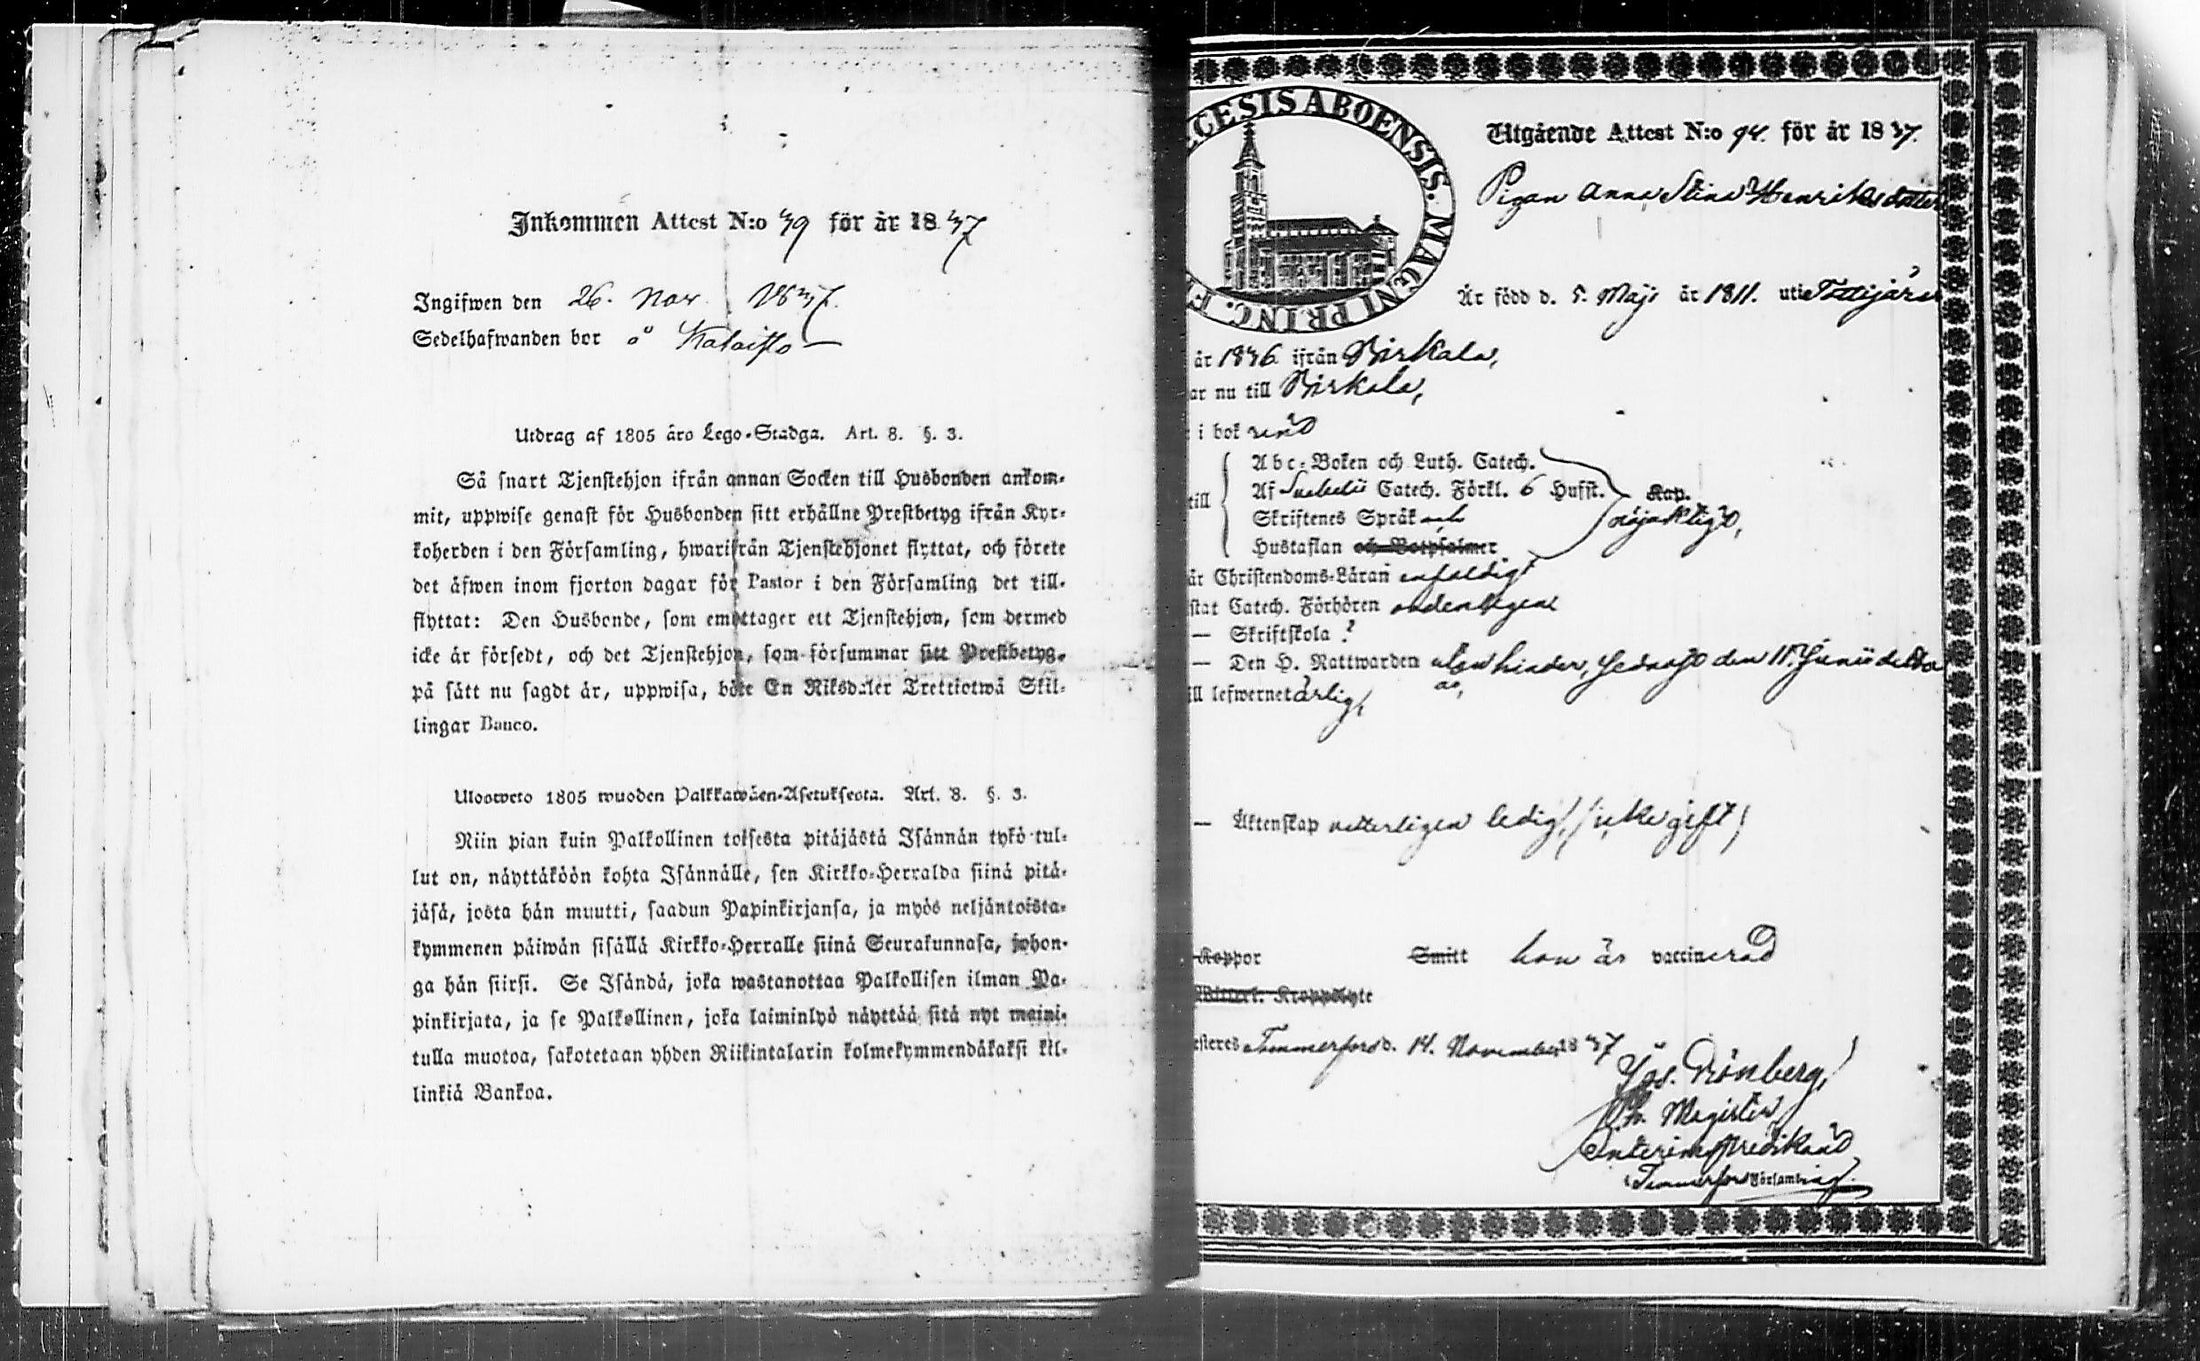 Inkommen Attest N:o 39 för år 1837
Ingifwen den 26. Nov. 1837.
Sedelhafwanden bor å
Utdrag af 1805 års Lego-Stadga. Art. 8. §. 3.
Så snart Tjenstehjon ifrån annan Socken till Husbonden ankom-
mit, uppwise genast för Husbonden sitt erhållne Prestbetyg ifrån Kyr-
koherden i den Församling, hwarifrån Tjenstehjonet flyttat, och förete
det äfwen inom fjorton dagar för Pastor i den Församling det till-
flyttat: Den Husbonde, som emottager ett Tjenstehjon, som dermed
icke är försedt, och det Tjenstehjon, som försummar sitt Prestbetyg,
på sätt nu sagdt är, uppwisa, böte En Riksdaler Trettiotwå Skil-
lingar Banco.
Ulosweto 1805 wuoden Palkkawäen-Asetuksesta. Art. 8. §. 3.
Niin pian kuin Palkollinen toisesta pitäjästä Isännän tykö tul-
lut on, näyttäköön kohta Isännälle, sen Kirkko-Herralda siinä pitä-
jäsä, josta hän muutti, saadun Papinkirjansa, ja myös neljäntoista-
kymmenen päiwän sisällä Kirkko-Herralle siinä Seurakunnasa, johon-
ga hän siirsi. Se Isändä, joka wastanottaa Palkollisen ilman Pa-
pinkirjata, ja se Palkollinen, joka laiminlyö näyttää sitä nyt maini-
tulla muotoa, sakotetaan yhden Riikintalarin kolmekymmendäkaksi kil-
linkiä Bankoa.
CESIS ABOENSIS. MAGNI PRINC. F
Utgående Attest N:o 94. för år 1837.
Pigan Anna Stina Henriksdotter
Är född d. 5. Maji år 1811. uti Tottijärvi
år 1836 ifrån Birkala,
ar nu till Birkala,
i bok
Abc-Boken och Luth. Catech.
till Af Svebelii Catech. Förkl. 6 Hufst. Kap.
Skriftenes Språk och nöjaktigt,
Hustaflan och Botpsalmer
är Christendoms-Läran enfaldigt
stat Catech. Förhören ordentligen
— Skriftskola
— Den H. Nattwarden utan hinder, sednast den 11. Junii detta
ill lefwernet ärlig,
— Äktenskap vetterligen ledig, (icke gift)
Koppor Smitt hon är vaccinerad
Witterl. Kropplyte
esteres Tammerfors d. 14. November 1837
Grönberg,
Ph. Magister
Interimspredikant
i Tammerfors Församling.